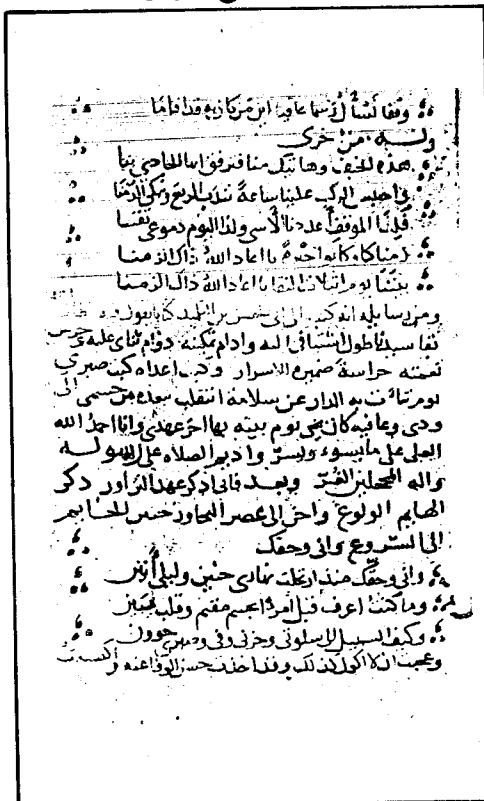 وقفا نسأل رسما عافيا اين من كان به قد اقاما
وله من اخرى
هذه الخيف وهاتيك منى فترفق ايها الحادي بنا
واحبس الركب علينا ساعة نندب الربع ونبكي الدمنا
فلذا الموقف اعددنا الاسى ولذا اليوم دموعي تقتنا
زمنا كان وكانوا جيرة يا اعاد الله ذاك الزمنا
بيننا يوم اثيلات النقا يا اعاد الله ذاك الزمنا
ومن رسايله انه كتب الى
سيدنا طول اشتياقي اليه وادام تمكينه دوام ثناي عليه وحرس
نعمته حراسة ضميره الاسرار وكبت اعداه كبت صبري
يوم تناءت به الدار عن سلامة انتقلت بعده من جسمي الى
ودي وعافية كان يوم بينه بها اخر عهدي وانا احمد الله
العلي على ما يسوء ويسر واديم الصلاة على رسوله
واله المحجلين الغر وبعد فاني اذكر عهد التزاور ذكر
الهايم الولوع واحن الى عصر التجاور حنين الحايم
الى الشروع واني وحقك
واني وحقك منذ ارتحلت نهاري حنين وليلي أنين
وما كنت اعرف قبل امرءا بجسم مقيم وقلب يبين
وكيف السبيل الى سلوتي وحزني وفي وصبري خوون
وعجبت ان لا اكون كذلك وقد اخذت حسن الوفا عنه واكتسبت